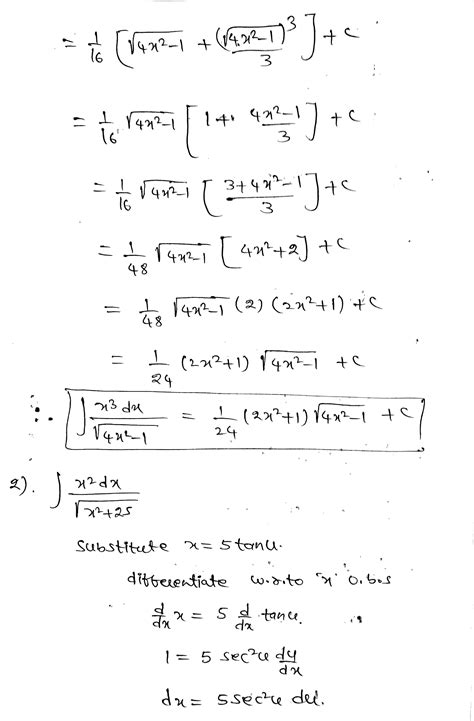 = 1/16 [√4x²-1 + (√4x²-1)³/3] + c
= 1/16 √4x²-1 [1+ 4x²-1/3] + c
= 1/16 √4x²-1 [3+4x²-1/3] + c
= 1/48 √4x²-1 [4x²+2] + c
= 1/48 √4x²-1 (2) (2x²+1) + c
= 1/24 (2x²+1) √4x²-1 + c
∴ ∫ x³ dx/√4x²-1 = 1/24 (2x²+1) √4x²-1 + c
2). ∫ x² dx/√x²+25
substitute x = 5 tan u.
differentiate w.r.to 'x' o.b.s
d/dx x = 5 d/dx tan u.
1 = 5 sec²u du/dx
dx = 5 sec²u du.